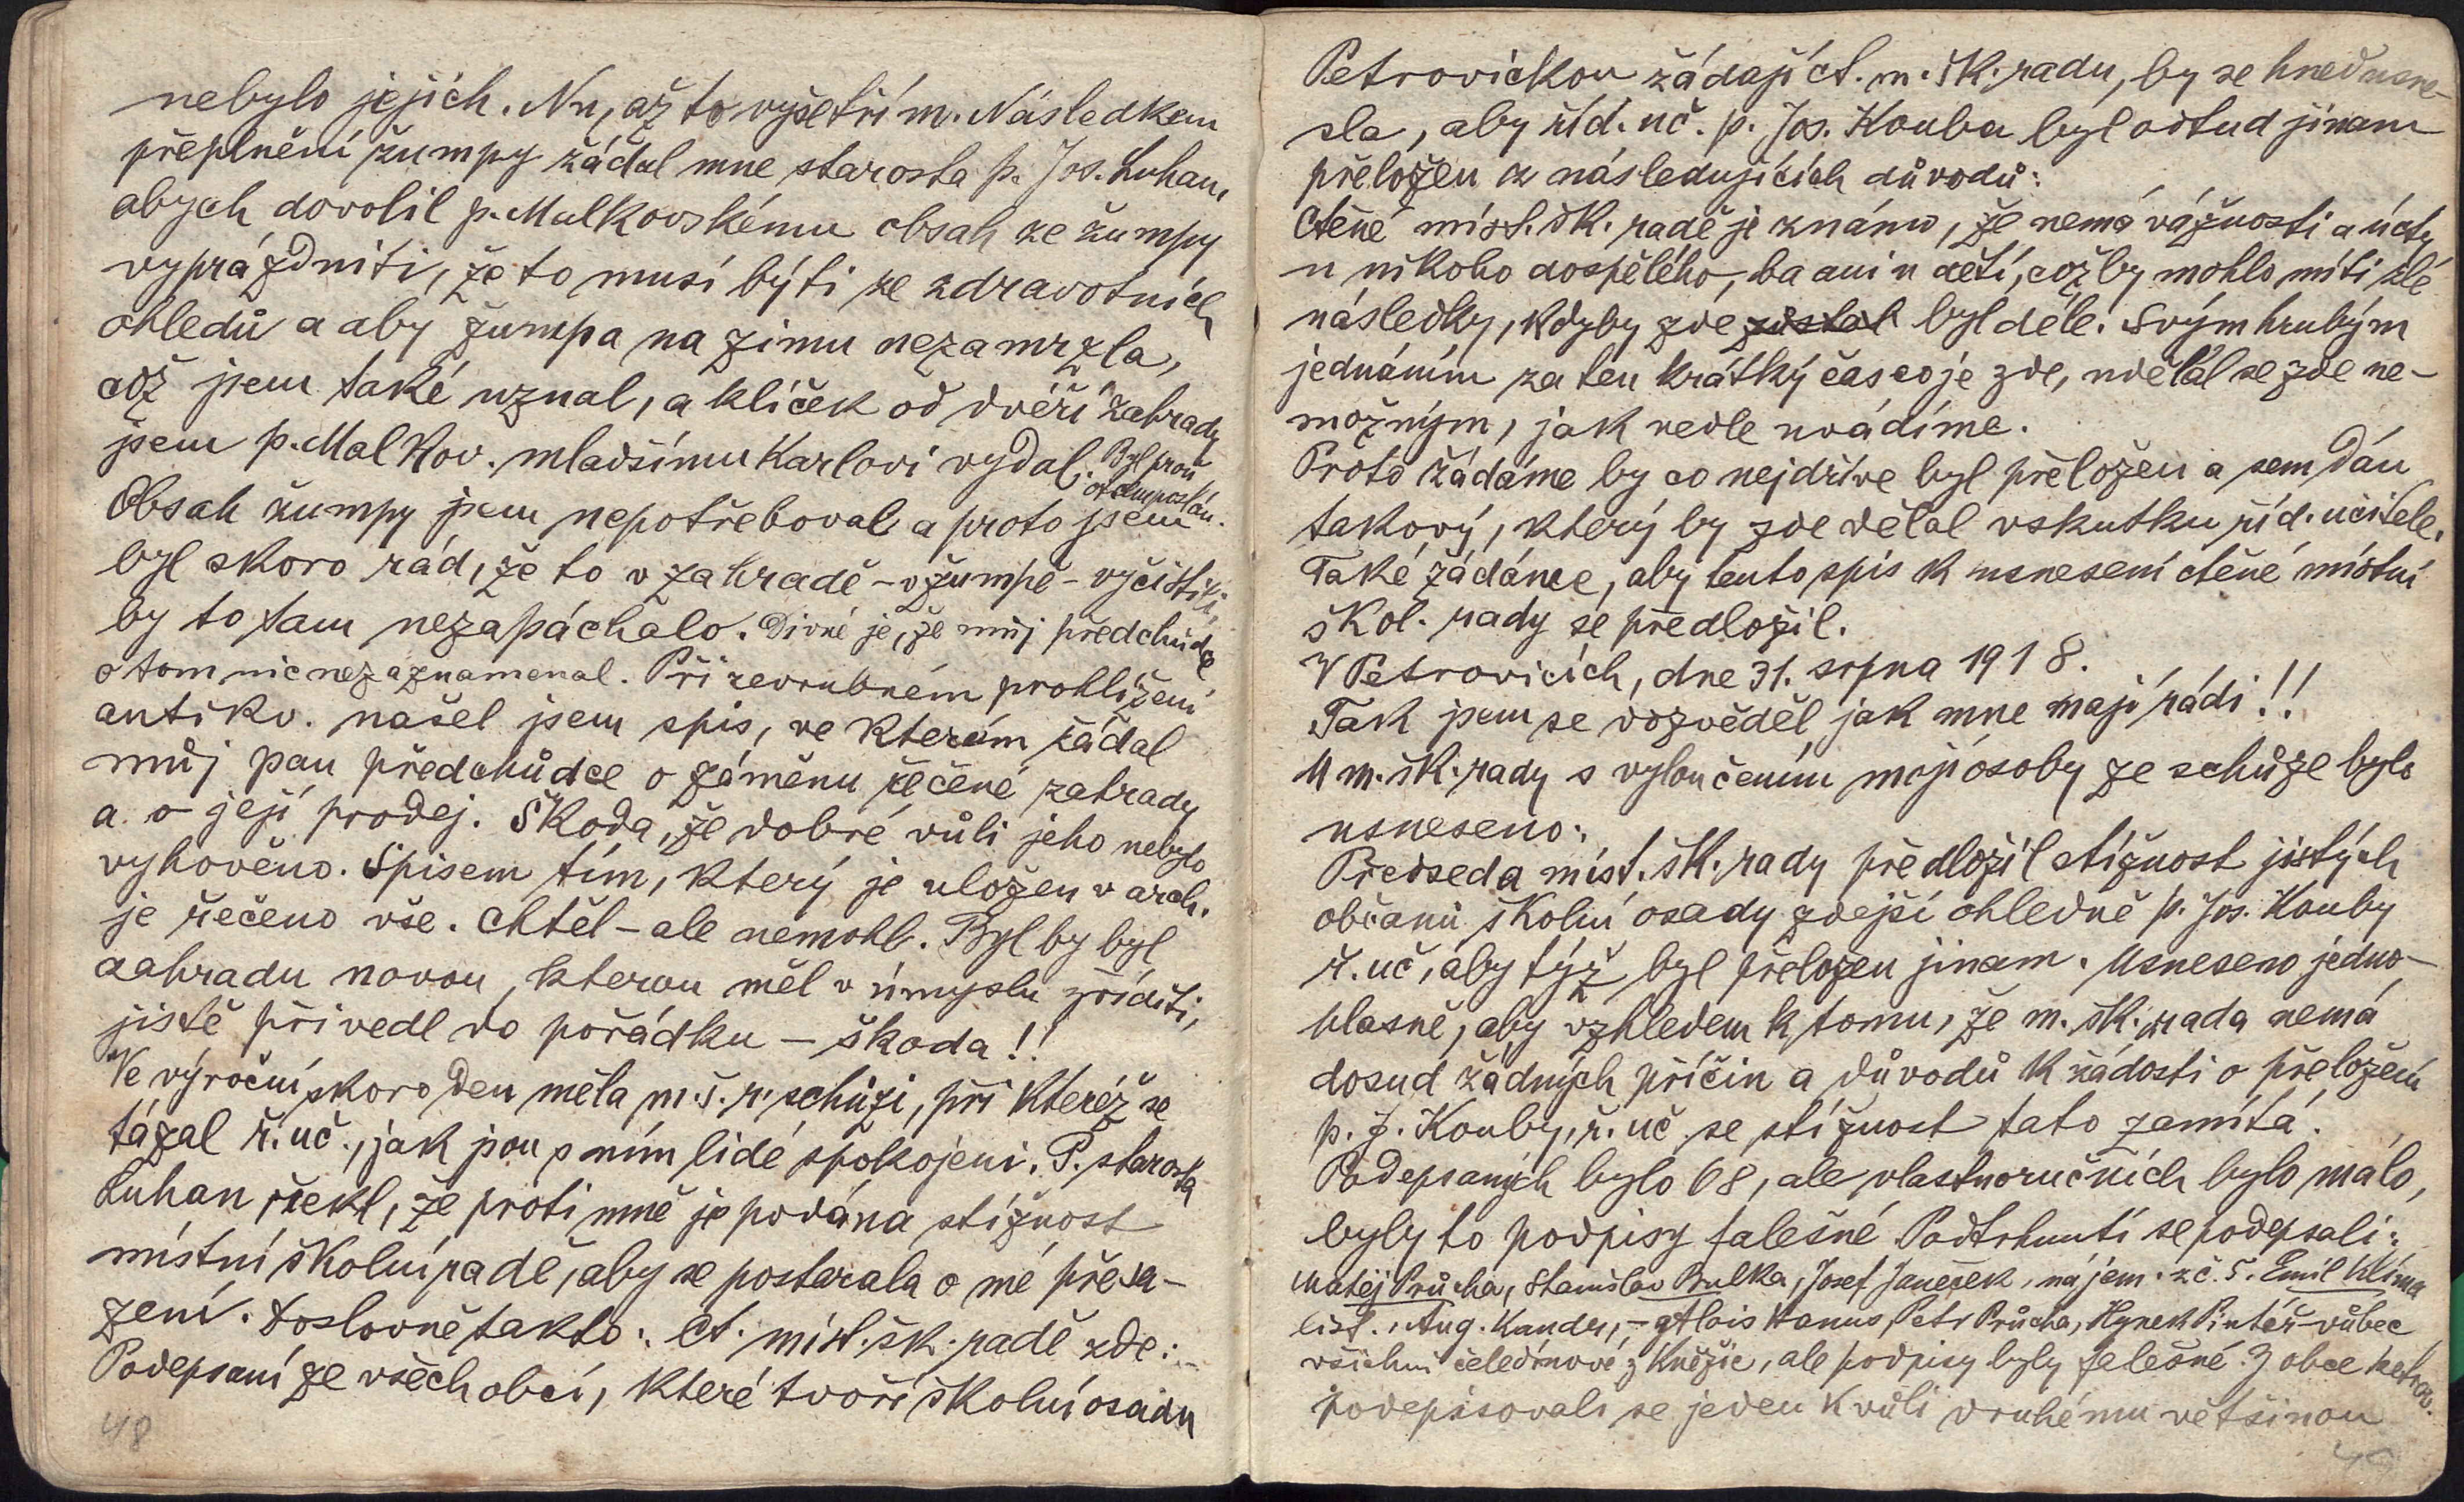 nebylo jejich. Nu, až to vyšetřím. Následkem
přeplnění žumpy žádal mne starosta p. Jos. Luhan,
abych dovolil p. Malkovskému obsah ze žumpy
vyprázdniti, že to musí býti ze zdravotních
ohledů a aby žumpa na zimu nezamrzla,
což jsem také uznal, a klíček od dvéří zahrady
jsem p. Malkov. mladšímu Karlovi vydal. Byl proň
otcem poslán.
Obsah žumpy jsem nepotřeboval a proto jsem
byl skoro rád, že to v zahradě - v žumpě - vyčistili,
by to tam nezapáchalo. Divné je, že můj předchůdce
o tom nic nezaznamenal. Při zevrubném prohlížení
antikv. našel jsem spis, ve kterém žádal
můj pan předchůdce o záměnu řečené zahrady
a o její prodej. Škoda, že dobré vůli jeho nebylo
vyhověno. Spisem tím, který je uložen v arch.
je řečeno vše. Chtěl - ale nemohl. Byl by byl
zahradu novou, kterou měl v úmyslu zříditi,
jistě přivedl do pořádku - škoda!!
Ve výroční skoro den měla m. š. r. schůzi, při kteréž se
tázal ř. uč., jak jsou s ním lidé spokojeni. P. starosta
Luhan řekl, že proti mně je podána stížnost
místní školní radě, aby se postarala o mé přesa-
zení. Doslovně takto: Ct. míst. šk. radě zde:-
Podepsaní ze všech obcí, které tvoří školní osadu
48
Petrovickou žádají ct. m. šk. radu, by se hned usne-
sla, aby říd. uč. p. Jos. Kouba byl odtud jinam
přeložen z následujících důvodů:
Ctěné míst. šk. radě je známo, že nemá vážnosti a úcty
u nikoho dospělého, ba ani u dětí, což by mohlo míti zlé
následky, kdyby zde zůstal byl déle. Svým hrubým
jednáním za ten krátký čas co je zde, udělal se zde ne-
možným, jak vedle uvádíme.
Proto žádáme by co nejdříve byl přeložen a sem dán
takový, který by zde dělal vskutku říd. učitele.
Také žádáme, aby tento spis k usnesení ctěné místní
škol. rady se předložil.
V Petrovicích, dne 31. srpna 1918.
Tak jsem se dozvěděl, jak mne mají rádi!!
U m. šk. rady s vyloučením mojí osoby ze schůze bylo
usneseno:
Předseda míst. šk. rady předložil stížnost jistých
občanů školní osady zdejší ohledně p. Jos. Kouby
ř. uč, aby týž byl přeložen jinam. Usneseno jedno-
hlasně, aby vzhledem k tomu, že m. šk. rada nemá
dosud žádných příčin a důvodů k žádosti o přeložení
p. J. Kouby, ř. uč se stížnost tato zamítá.
Podepsaných bylo 68, ale vlastnoručních bylo málo,
byly to podpisy falešné Podtrhnutí se podepsali:
Matěj Průcha, Stanislav Bulka, Josef Janeček, nájem. z č. 5. Emil Klíma
list., Aug. Kander, - Alois Hanus, Petr Průcha, Hynek Pintéř - vůbec
všichni čeledínové z Kněžic, ale podpisy byly falešné. Z obce Petrov.
podepisovali se jeden kvůli druhému většinou
49